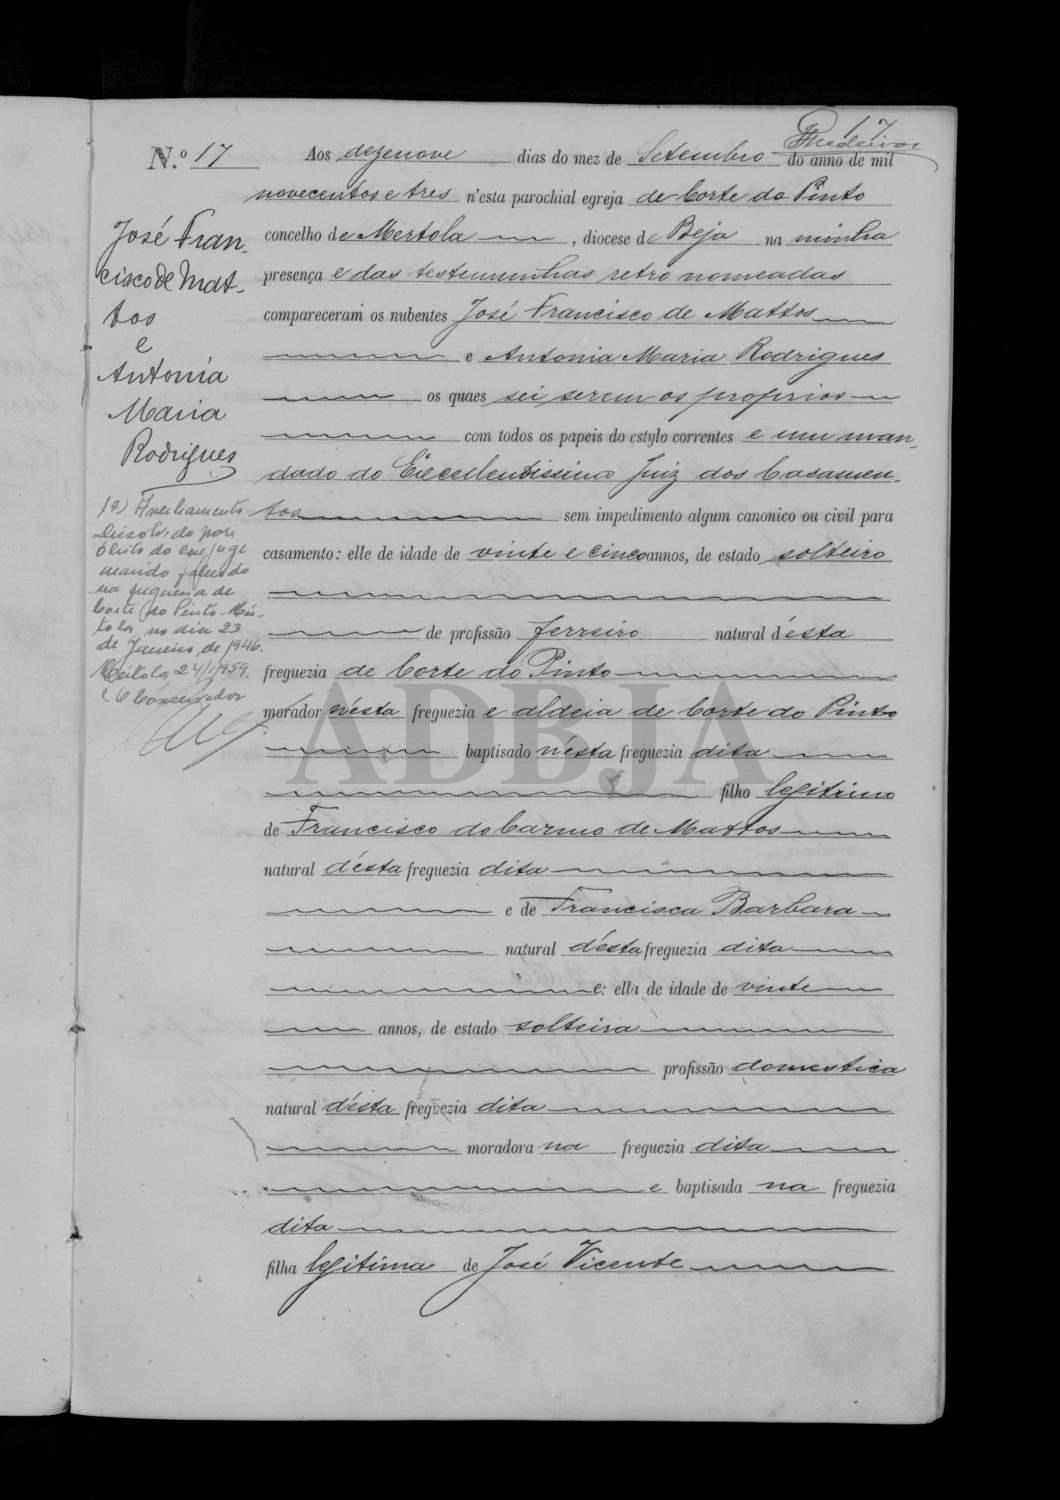 17
Medeiros
N.º 17
José Fran-
cisco de Mat-
tos
e
Antonia
Maria
Rodrigues
1º) Averbamento
Dissolvido por
óbito do conjuge
marido falecido
na freguesia de
Corte do Pinto - Mér-
tola, no dia 23
de Janeiro de 1946.
Mértola, 24/1/959.
O Conservador
Aos dezenove dias do mez de Setembro do anno de mil
novecentos e tres n'esta parochial egreja de Corte do Pinto
concelho de Mertola, diocese de Beja na minha
presença e das testemunhas retro nomeadas
compareceram os nubentes José Francisco de Mattos
e Antonia Maria Rodrigues
os quaes sei serem os proprios
com todos os papeis do estylo correntes e um man-
dado do Excellentissimo Juiz dos Casamen-
tos sem impedimento algum canonico ou civil para
casamento: elle de idade de vinte e cinco annos, de estado solteiro
de profissão ferreiro natural d'esta
freguezia de Corte do Pinto
morador n'esta freguezia e aldeia de Corte do Pinto
baptisado n'esta freguezia dita
filho legitimo
de Francisco do Carmo de Mattos
natural d'esta freguezia dita
e de Francisca Barbara
natural d'esta freguezia dita
e: ella de idade de vinte
annos, de estado solteira
profissão domestica
natural d'esta freguezia dita
moradora na freguezia dita
e baptisada na freguezia
dita
filha legitima de José Vicente
ADBJA